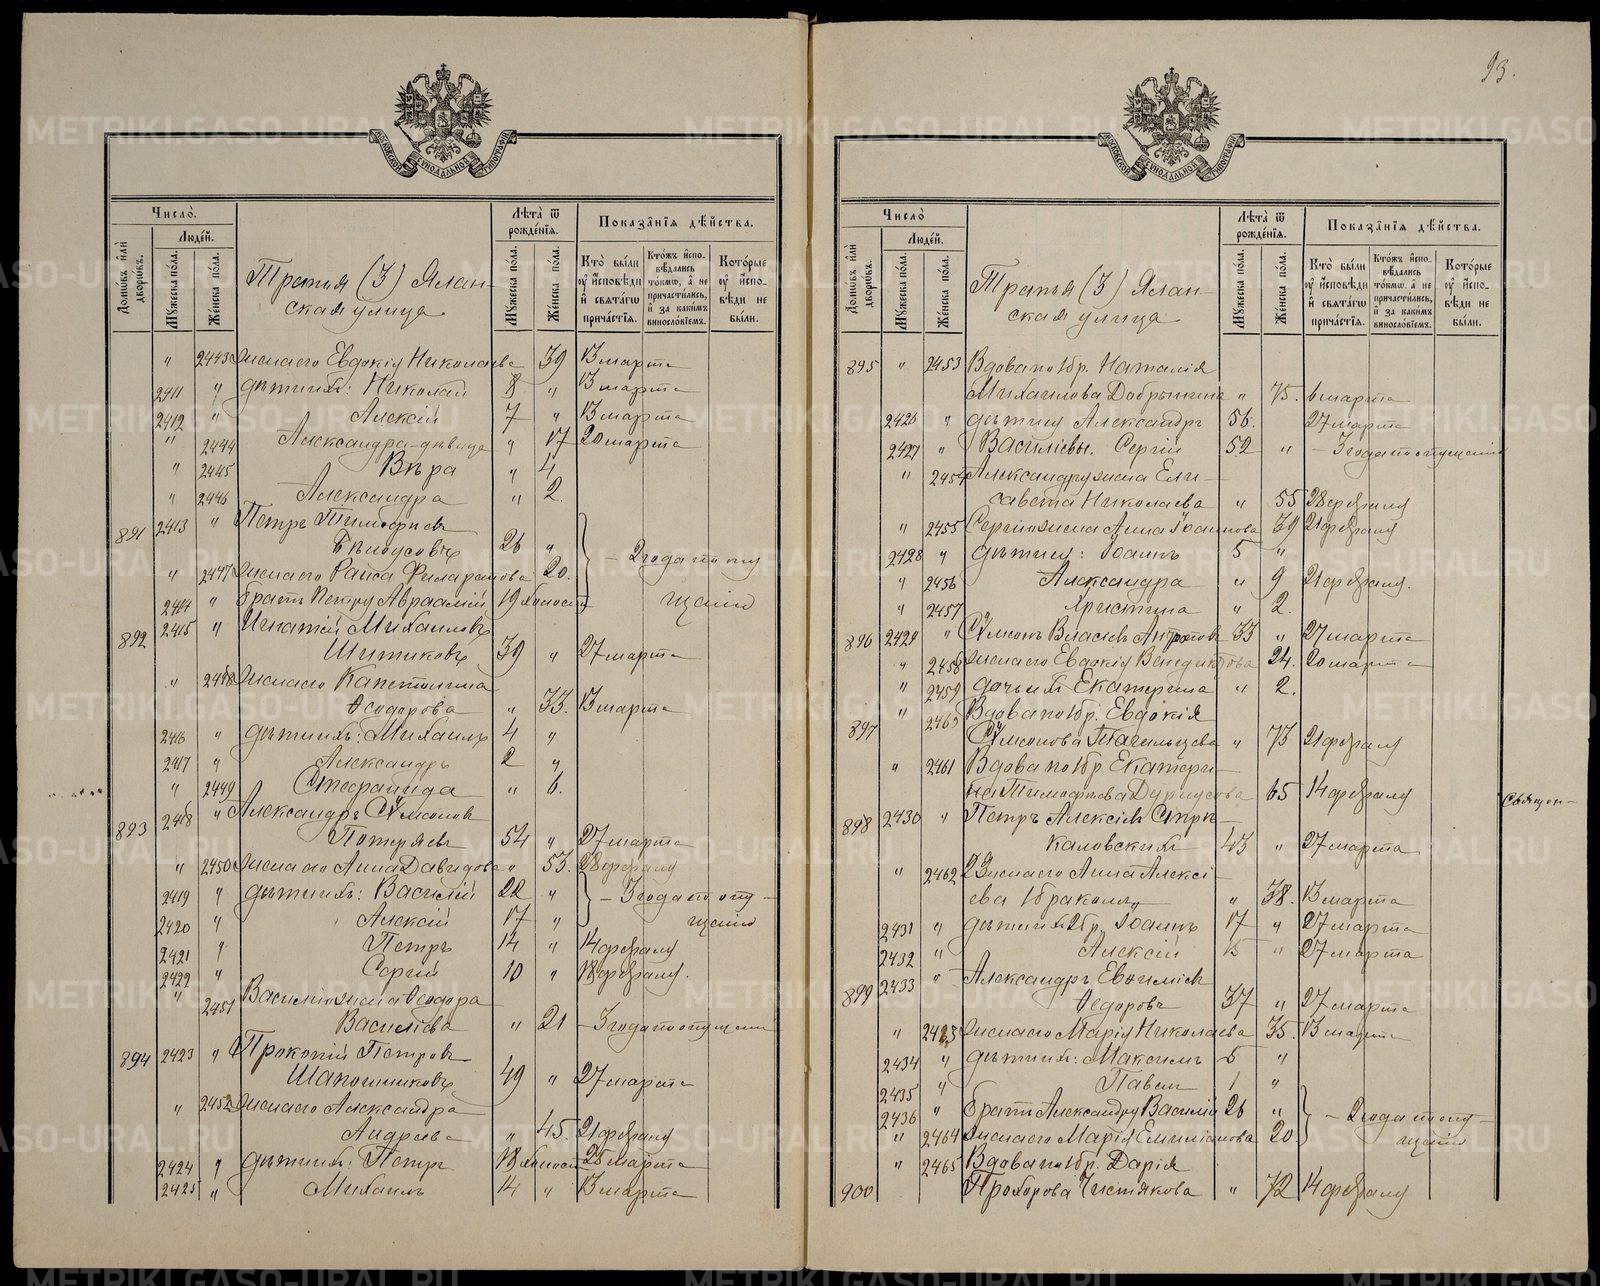 93.
МОСКОВСКОЙ СѴНОДАЛЬНОЙ ТИПОГРАФІИ
Число̀.
Людей.
Домѡвъ и҆лѝ дворѡвъ.
Мꙋжеска по́ла.
Же́нска по́ла.
Третья (3) Ялан-
ская улица
Лѣта̀ ѿ рожде́нїѧ.
Мꙋжеска по́ла.
Же́нска по́ла.
Показа̑нїѧ дѣ́йства.
Кто̀ бы́ли ᲂу҆ и҆сповѣди и҆ свѧта́гѡ прича́стїѧ.
Кто́жъ и҆спо-вѣдались то́кмѡ, а҆ не причасти́лись, и҆ за каки́мъ виносло́вїемъ.
Кото́рые ᲂу҆ и҆спо-вѣди не бы́ли.
" 2443 жена его Евдокія Николаева 39 13 марта
2411 " дѣти ихъ: Николай 8 " 13 марта
2412 " Алексій 7 " 13 марта
" 2444 Александра-дѣвица " 17 20 марта
" 2445 Вѣра " 4
" 2446 Александра " 2.
891 2413 " Петръ Тимоѳеевъ
Бѣлоусовъ 26 " - 2 года по опу
" 2447 жена его Раиса Филаретова 20.
2414 " братъ Петру Авраамій 19 холостъ щенію
892 2415 " Игнатій Михаиловъ
Шитиковъ 39 " 27 марта
" 2448 жена его Капетолина
Ѳеодорова " 33. 13 марта
2416 " дѣти ихъ: Михаилъ 4 "
2417 " Александръ 2 "
" 2449 Стефанида " 6.
893 2418 " Александръ Сѵмеоновъ
Потеряевъ 54 " 27 марта
" 2450 жена его Анна Давидова " 53. 28 февраля
2419 " дѣти ихъ: Василій 22 " - 3 года по опу -
2420 " Алексій 17 " щенію
2421 " Петръ 14 " 14 февраля
2422 " Сергій 10 " 18 февраля.
" 2451 Василія жена Ѳеодора
Василіева " 21 - 3 года по опущенію
894 2423 " Прокопій Петровъ
Шапошниковъ 49 " 27 марта
" 2452 жена его Александра
Андреева " 45. 21 февраля
2424 " дѣти ихъ: Петръ 18 холостъ 25 марта
2425 " Михаилъ 14 " 13 марта
МОСКОВСКОЙ СѴНОДАЛЬНОЙ ТИПОГРАФІИ
Число̀
Людей.
Домѡвъ и҆лѝ дворѡвъ.
Мꙋжеска по́ла.
Же́нска по́ла.
Третья (3) Ялан-
ская улица
Лѣта̀ ѿ рожде́нїѧ.
Мꙋжеска по́ла.
Же́нска по́ла.
Показа̑нїѧ дѣ́йства.
Кто̀ бы́ли ᲂу҆ и҆сповѣди и҆ свѧта́гѡ прича́стїѧ.
Кто́жъ и҆спо-вѣдались то́кмѡ, а҆ не причасти́лись, и҆ за каки́мъ виносло́вїемъ.
Кото́рые ᲂу҆ и҆спо-вѣди не бы́ли.
895 " 2453 Вдова по 1 бр. Наталія
Михаилова Добрынина " 75. 6 марта
2426 " дѣти ея Александръ 56. 27 марта
2427 " Василіевы. Сергій 52 " - 3 года по опущенію
" 2454 Александру жена Ели-
савета Николаева " 55 28 февраля
" 2455 Сергію жена Анна Іоаннова 39 21 февраля
2428 " дѣти ихъ: Іоаннъ 5 "
" 2456 Александра " 9 21 февраля.
" 2457 Христина " 2.
896 2429 " Сѵмеонъ Власіевъ 33 " 27 марта
" 2458 жена его Евдокія Венедиктова 24. 20 марта
" 2459 дочь ихъ Екатерина " 2.
897 " 2460 Вдова по 1 бр. Евдокія
Сѵмеонова Тагильцева " 73 21 февраля
" 2461 Вдова по 1 бр Екатери-
на Тимоѳеева " 65 14 февраля
Священ-
898 2430 " Петръ Алексіевъ Стри-
каловскихъ 43 " 27 марта
" 2462 жена его Анна Алексі-
ева 1 бракомъ " 38. 13 марта
2431 " дѣти ихъ Іоаннъ 17 " 27 марта
2432 " Алексій 15 " 27 марта
899 2433 " Александръ Евѳиміевъ
Ѳедоровъ 37 " 27 марта
" 2463 жена его Марія Николаева 35. 13 марта
2434 " дѣти ихъ: Максимъ 5 "
2435 " Павелъ 1 "
2436 " братъ Александру Василій 26 " - 2 года по опу-
" 2464 жена его Марія Емиліанова 20 щенію
" 2465 Вдова по 1 бр. Дарія
900 Прохорова Чистякова " 72 14 февраля
METRIKI.GASO-URAL.RU